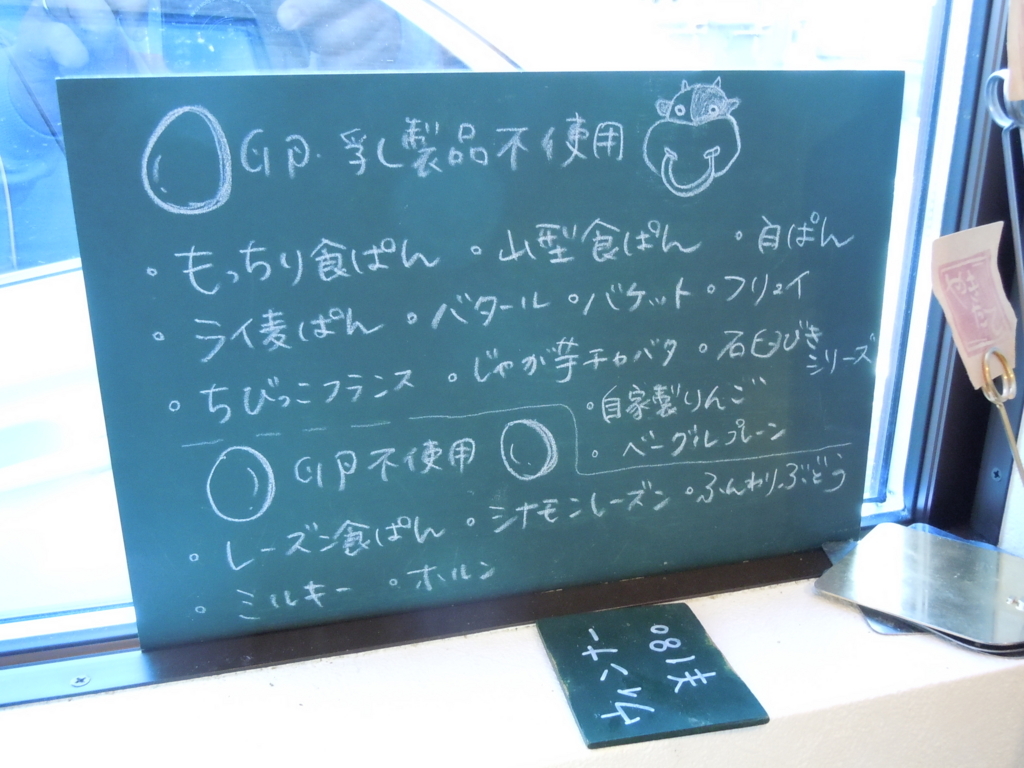 卵・乳製品不使用
・もっちり食ぱん ・山型食ぱん ・白ぱん
・ライ麦ぱん ・バタール ・バケット ・フリュイ
・ちびっこフランス ・じゃが芋チャバタ ・石臼びきシリーズ
・自家製りんご
・ベーグルプレーン
卵不使用
・レーズン食ぱん ・シナモンレーズン ・ふんわりぶどう
・ミルキー ・ホルン
¥180